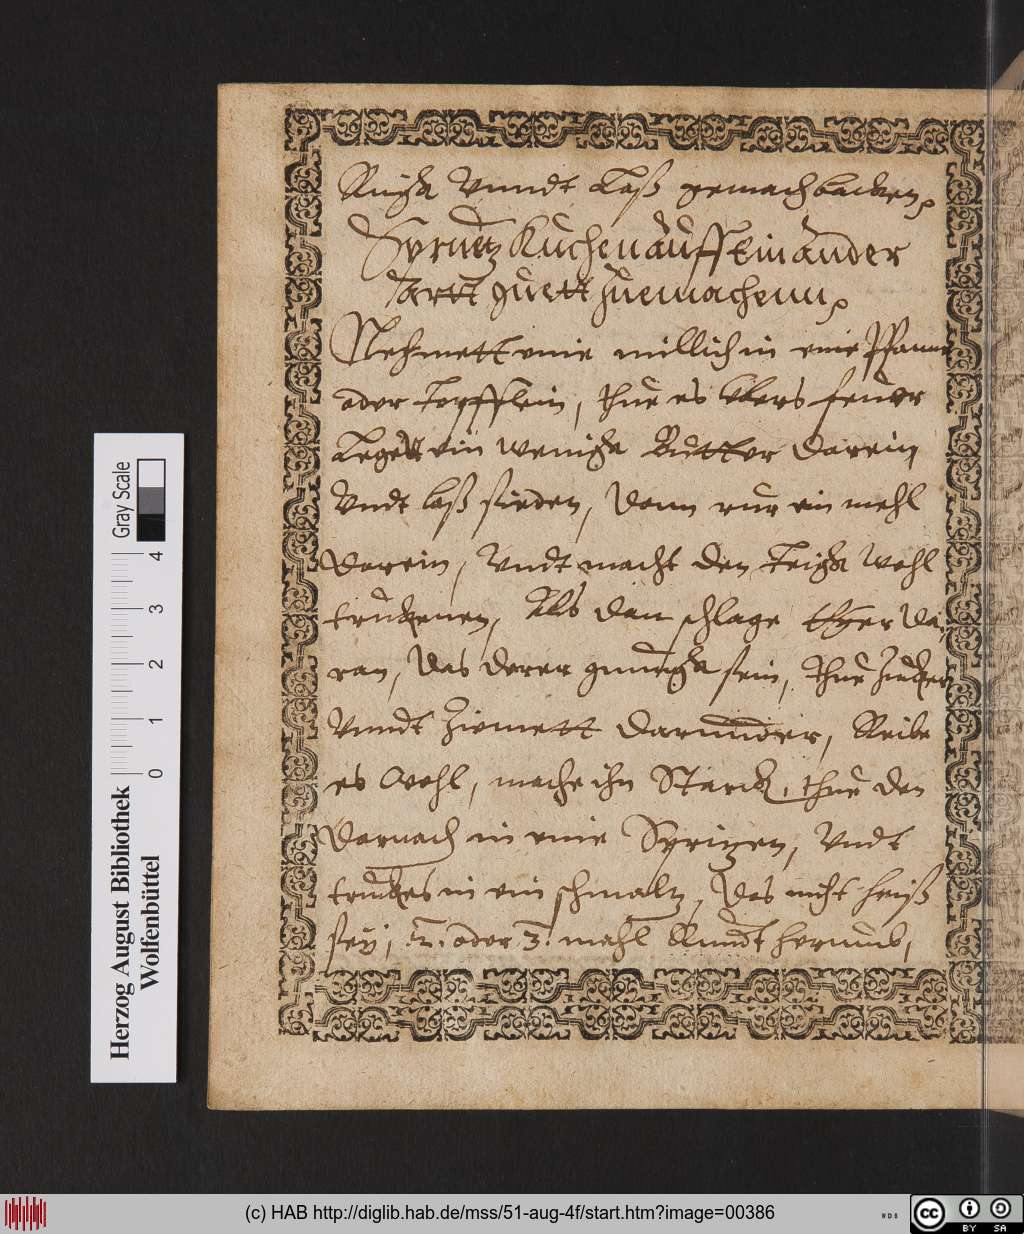 Ruigk Vnndt Laß gemach backen,
Syruetz Kuchen auff Ein ander
artt guett zue machenn,
Nehmett eine millich in eine Pfanne
oder Topfflein, thue es vbers feuer
Legett ein wenigk Butter darein,
Vndt laß sieden, dann rur ein mehl
darein, Vndt macht den Teigk wohl
truckenen, Als dan schlage Eyer da,
ran, das derer gnungk sein, thue Zucker
Vnndt Ziemett darunnder, Reibe
es wohl, mache ihn Starck, thue den
darnach in eine Spritzen, Vndt
truckes in ein schmaltz, das nicht heiß
sey, 2. oder 3. mahl Rundt herumb,
Gray Scale
4
3
2
1
0
Herzog August Bibliothek
Wolfenbüttel
(c) HAB http://diglib.hab.de/mss/51-aug-4f/start.htm?image=00386
WDB
cc
BY SA